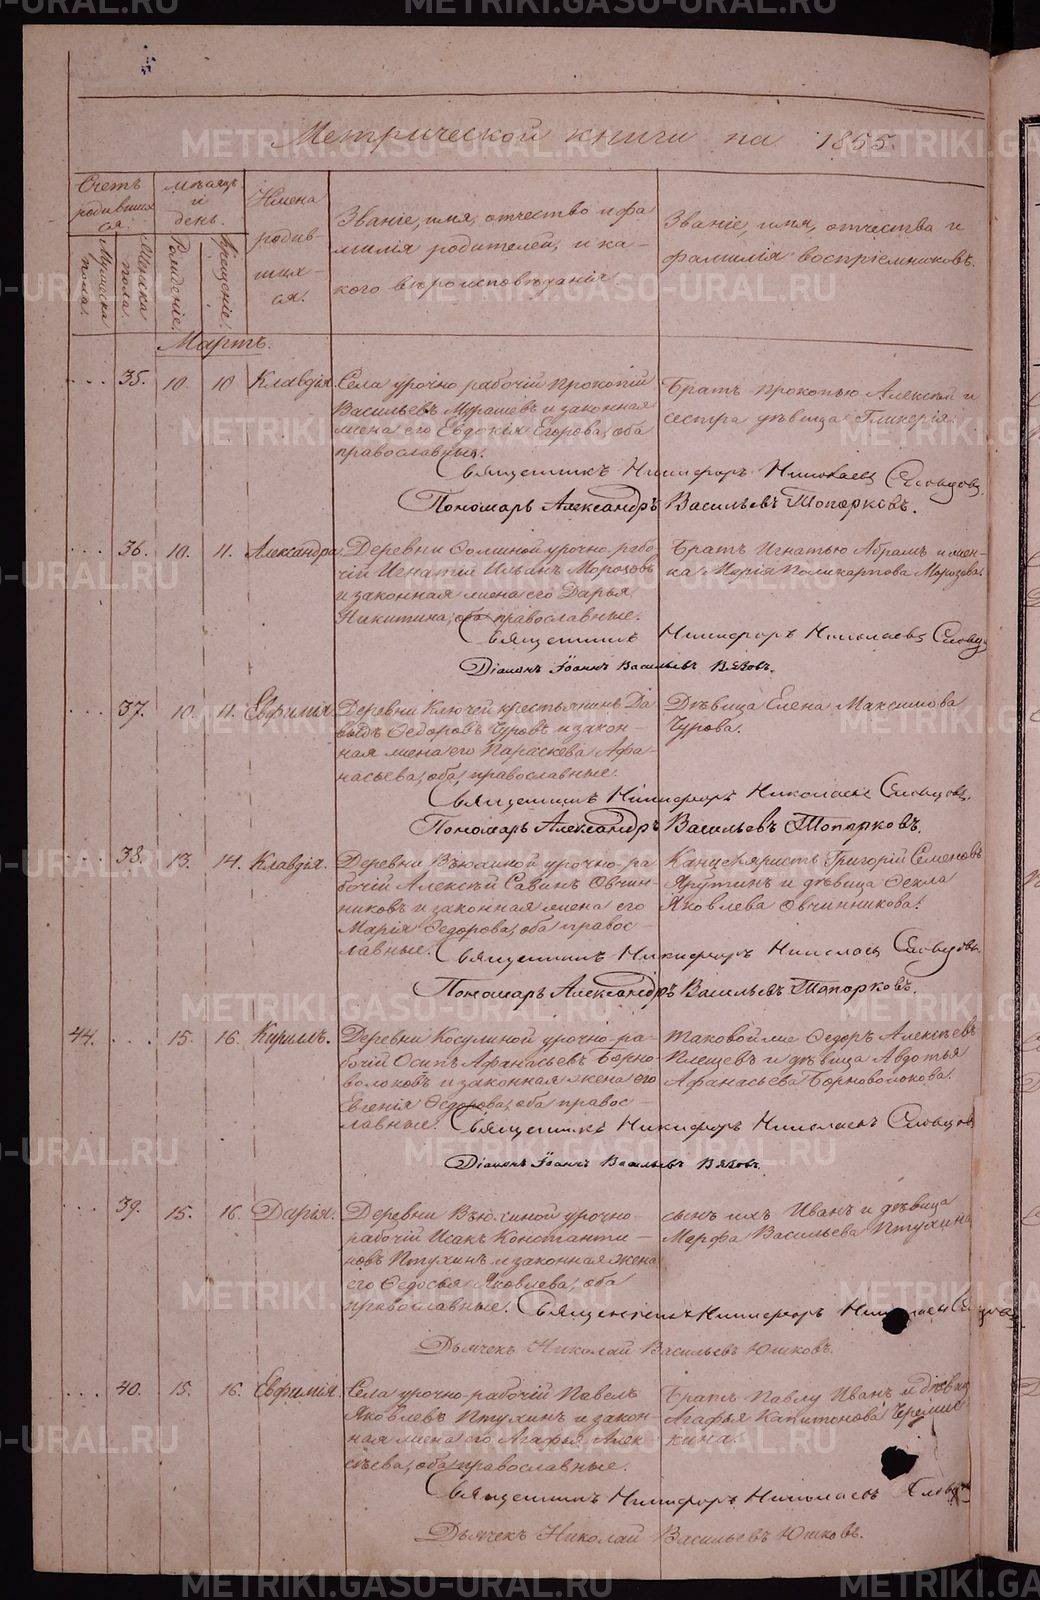 Метрической книги на 1865.
Счетъ родившихся.
Мужеска пола.
Женска пола.
мѣсяцъ и день.
Рожденіе.
Крещеніе.
Имена родившихся.
Званіе, имя, отчество и фамилія родителей, и какого вѣроисповѣданія
Званіе, имя, отчества и фамилія воспріемниковъ.
Мартъ.
35. 10. 10 Клавдія.
Села урочно рабочій Прокопій
Васильевъ Мурашевъ и законная
жена его Евдокія Егорова, оба
православныя.
Братъ Прокопью Алексѣй и
сестра дѣвица Гликерія.
Священникъ Никифоръ Николаевъ Словцовъ.
Пономарь Александръ Васильевъ Топорковъ.
36. 10. 11. Александра
Деревни урочно-рабо-
чій Игнатій Ильинъ Морозовъ
и законная жена его Дарья
Никитина, оба православные.
Братъ Игнатью Абрамъ и жен-
ка Марія Поликарпова Морозова.
Священникъ Никифоръ Николаевъ Словцовъ
Діаконъ Іоаннъ Васильевъ
37. 10. 11. Евфимія
Деревни Ключей крестьянинъ Да-
выдъ Ѳедоровъ Чуровъ и закон-
ная жена его Параскева Афа-
насьева, оба православные.
Дѣвица Елена Максимова
Чурова.
Священникъ Никифоръ Николаевъ Словцовъ.
Пономарь Александръ Васильевъ Топорковъ.
38. 13. 14. Клавдія.
Деревни Вьюхиной урочно-ра-
бочій Алексѣй Савинъ Овчин-
никовъ и законная жена его
Марія Ѳедорова, оба право-
славные.
Канцеляристъ Григорій Семеновъ
Ярутинъ и дѣвица Ѳекла
Яковлева Овчинникова.
Священникъ Никифоръ Николаевъ Словцовъ.
Пономарь Александръ Васильевъ Топорковъ.
44. 15. 16. Кириллъ.
Деревни Косулиной урочно-ра-
бочій Осипъ Афанасьевъ Борно-
волоковъ и законная жена его
Евгенія Ѳедорова, оба право-
славные.
Таковой же Ѳедоръ Алексѣевъ
Плещевъ и дѣвица Авдотья
Афанасьева Борноволокова.
Священникъ Никифоръ Николаевъ Словцовъ
Діаконъ Іоаннъ Васильевъ
39. 15. 16. Дарія.
Деревни Вьюхиной урочно-
рабочій Исакъ Константи-
новъ Птухинъ и законная жена
его Ѳедосья Яковлева, оба
православные.
сынъ ихъ Иванъ и дѣвица
Марфа Васильева Птухина
Священникъ Никифоръ Николаевъ
Дьячекъ Николай Васильевъ Юшковъ.
40. 15. 16. Евфимія.
Села урочно-рабочій Павелъ
Яковлевъ Птухинъ и закон-
ная жена его Агафья Алек-
сѣева, оба православные.
Братъ Павлу Иванъ и дѣвица
Агафья Капитонова
Священникъ Никифоръ Николаевъ Словцовъ
Дьячекъ Николай Васильевъ Юшковъ.
METRIKI.GASO-URAL.RU